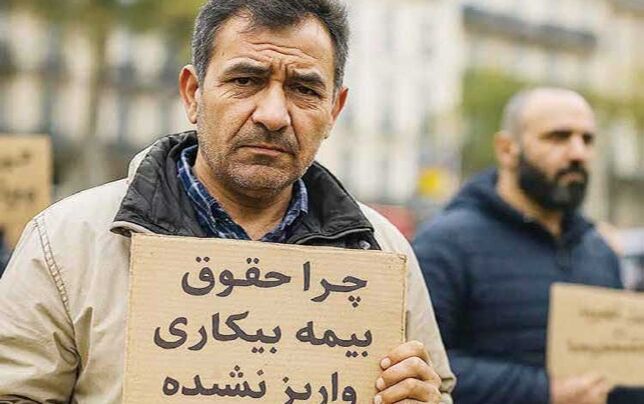 چرا حقوق
بیمه بیکاری
واریز نشده